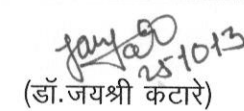 25-10-13
(डॉ. जयश्री कटारे)